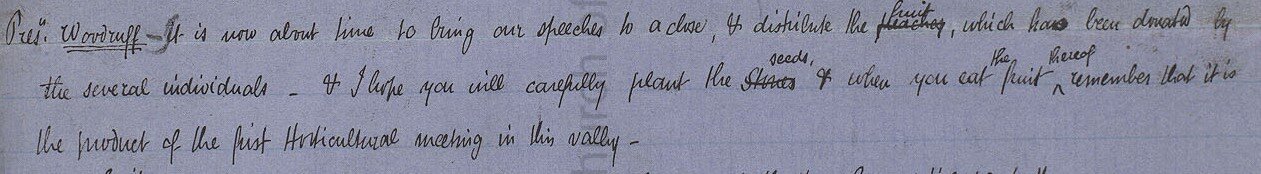 Pres.t Woodruff - It is now about time to bring our speeches to a close, & distribute the peaches fruit, which has been donated by
the several individuals - & I hope you will carefully plant the Stones seeds, & when you eat the fruit thereof remember that it is
the product of the first Horticultural meeting in this valley -